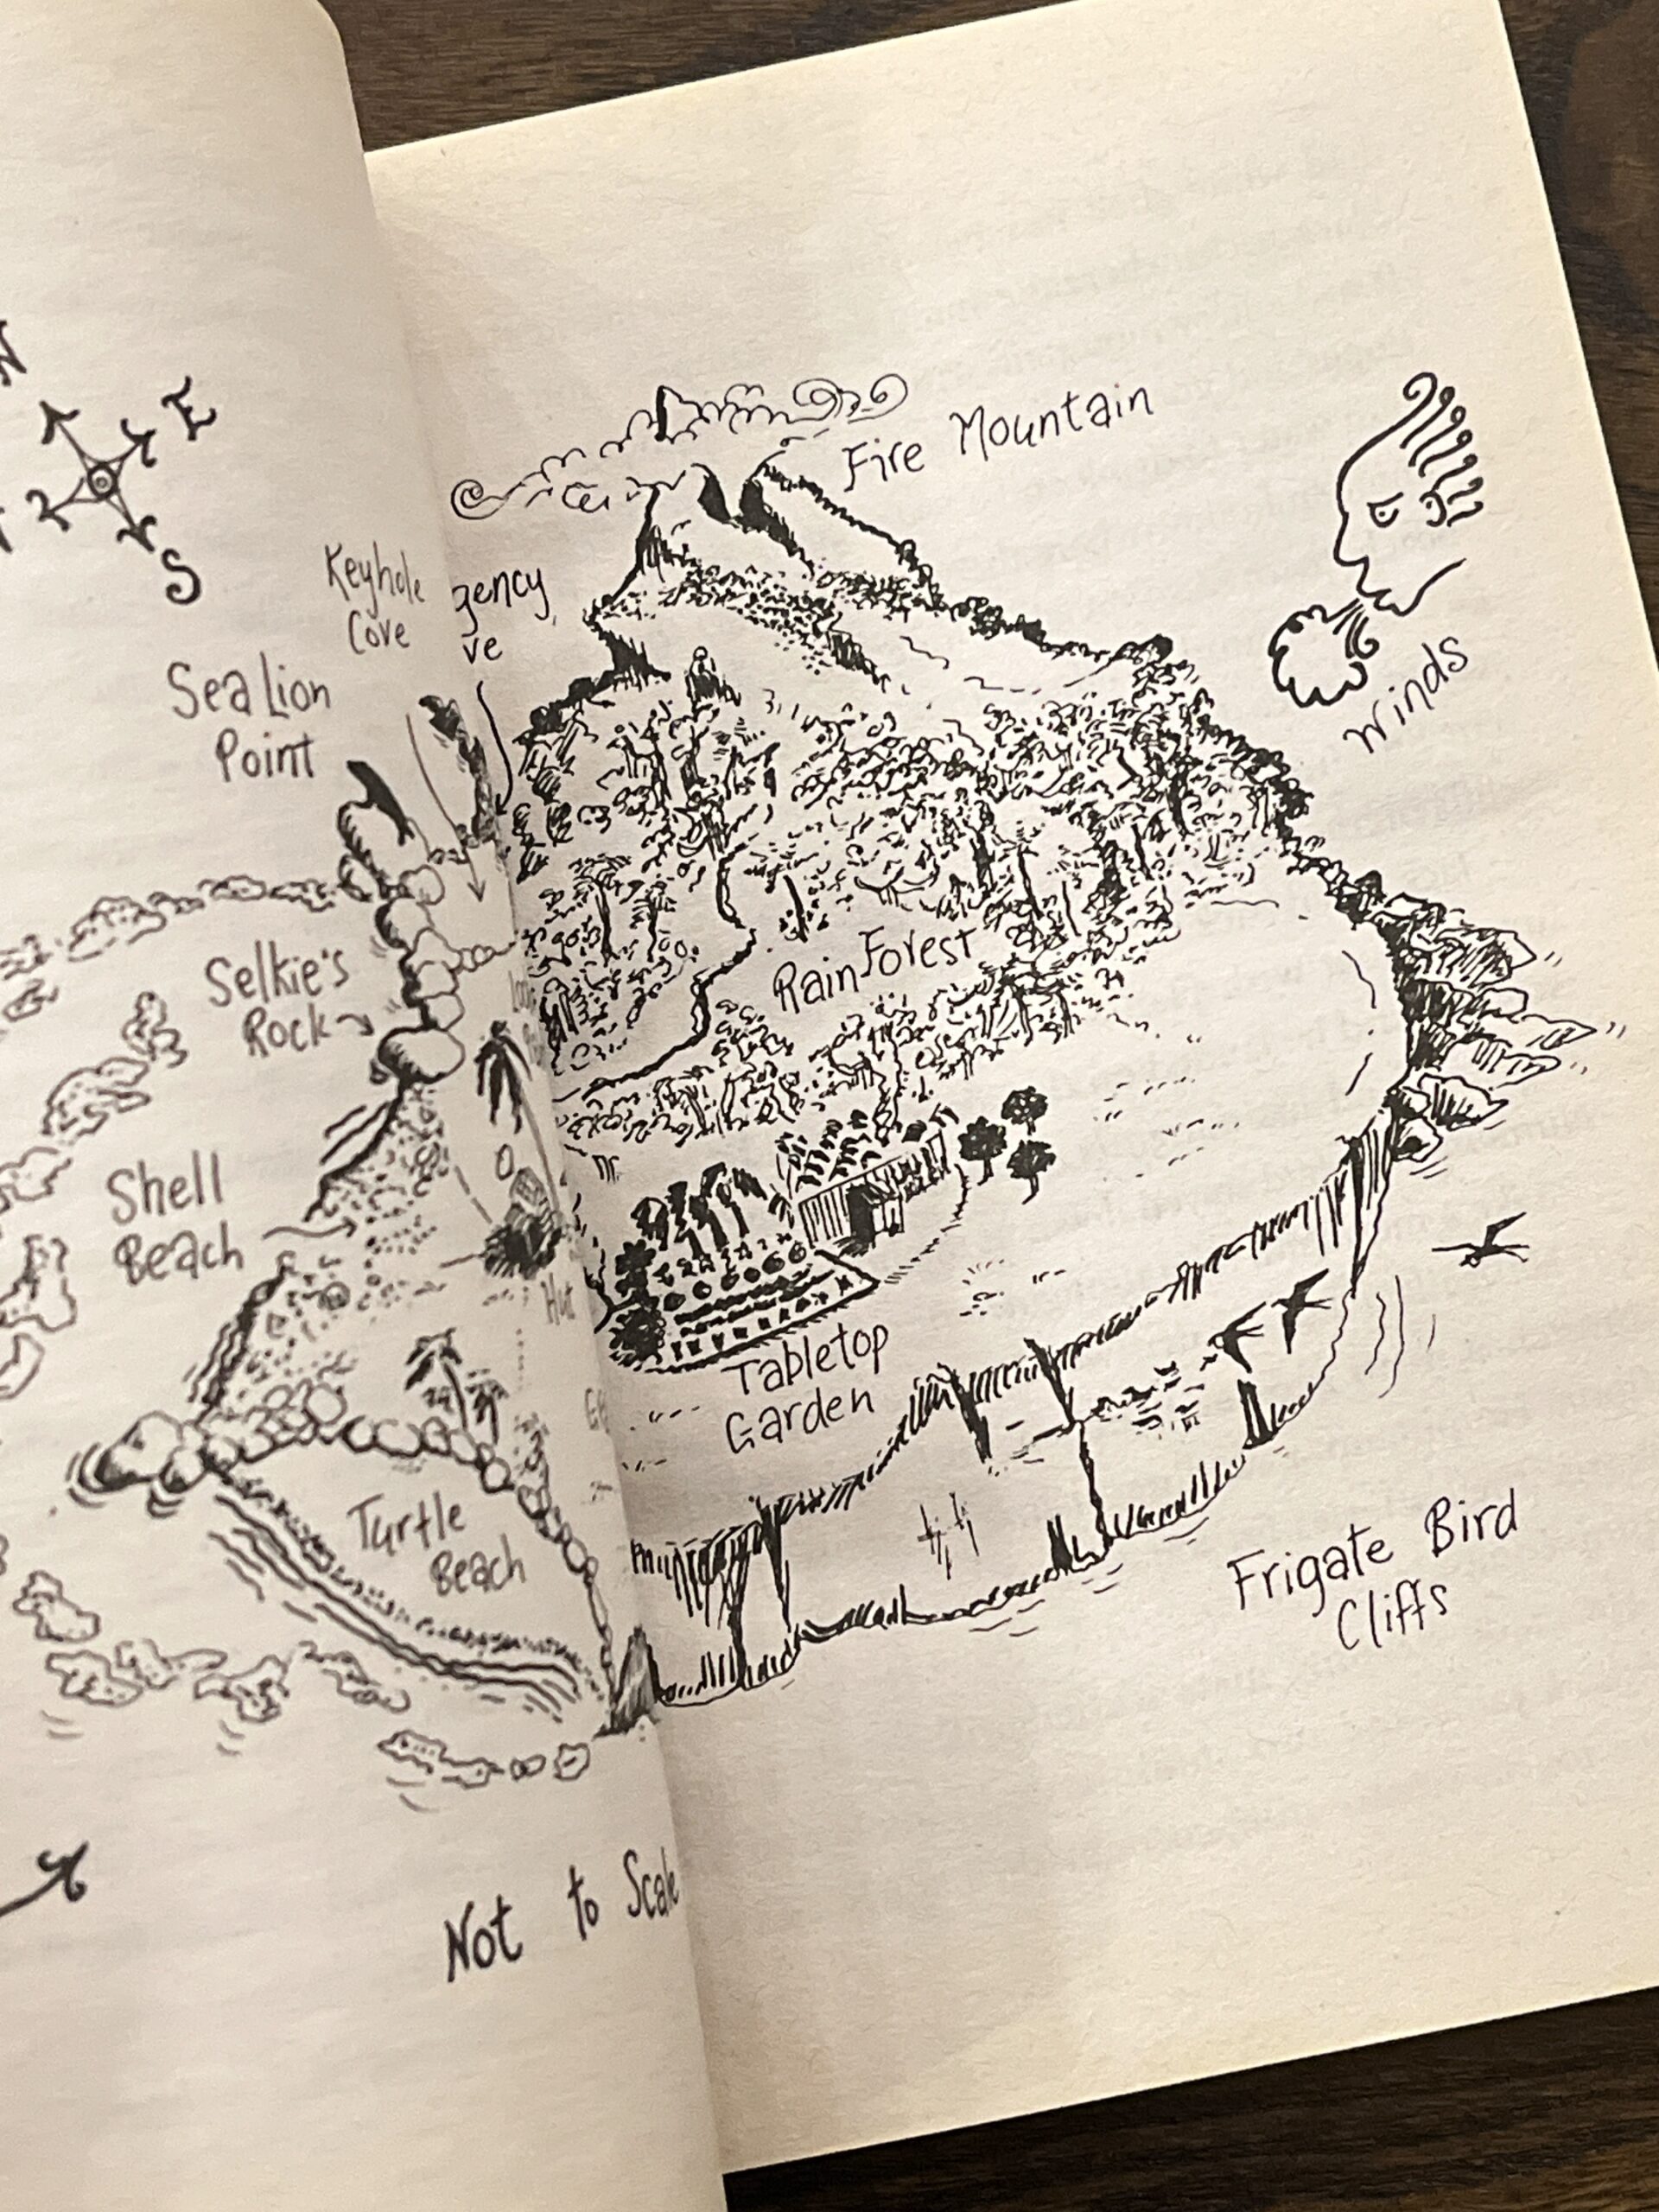 N
E
S
Fire Mountain
Keyhole
Cove
gency
ve
Sea Lion
Point
Winds
Selkie's
Rock
Rain Forest
Shell
Beach
Hut
Tabletop
Garden
Turtle
Beach
Frigate Bird
Cliffs
Not to Scale